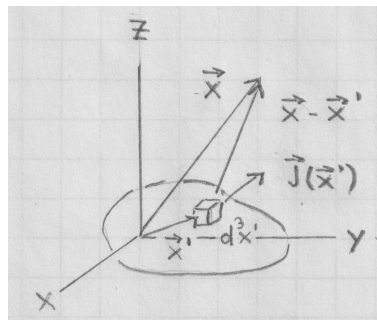 Z
x⃗
x⃗ - x⃗'
J⃗(x⃗')
x⃗' d³x' Y
X